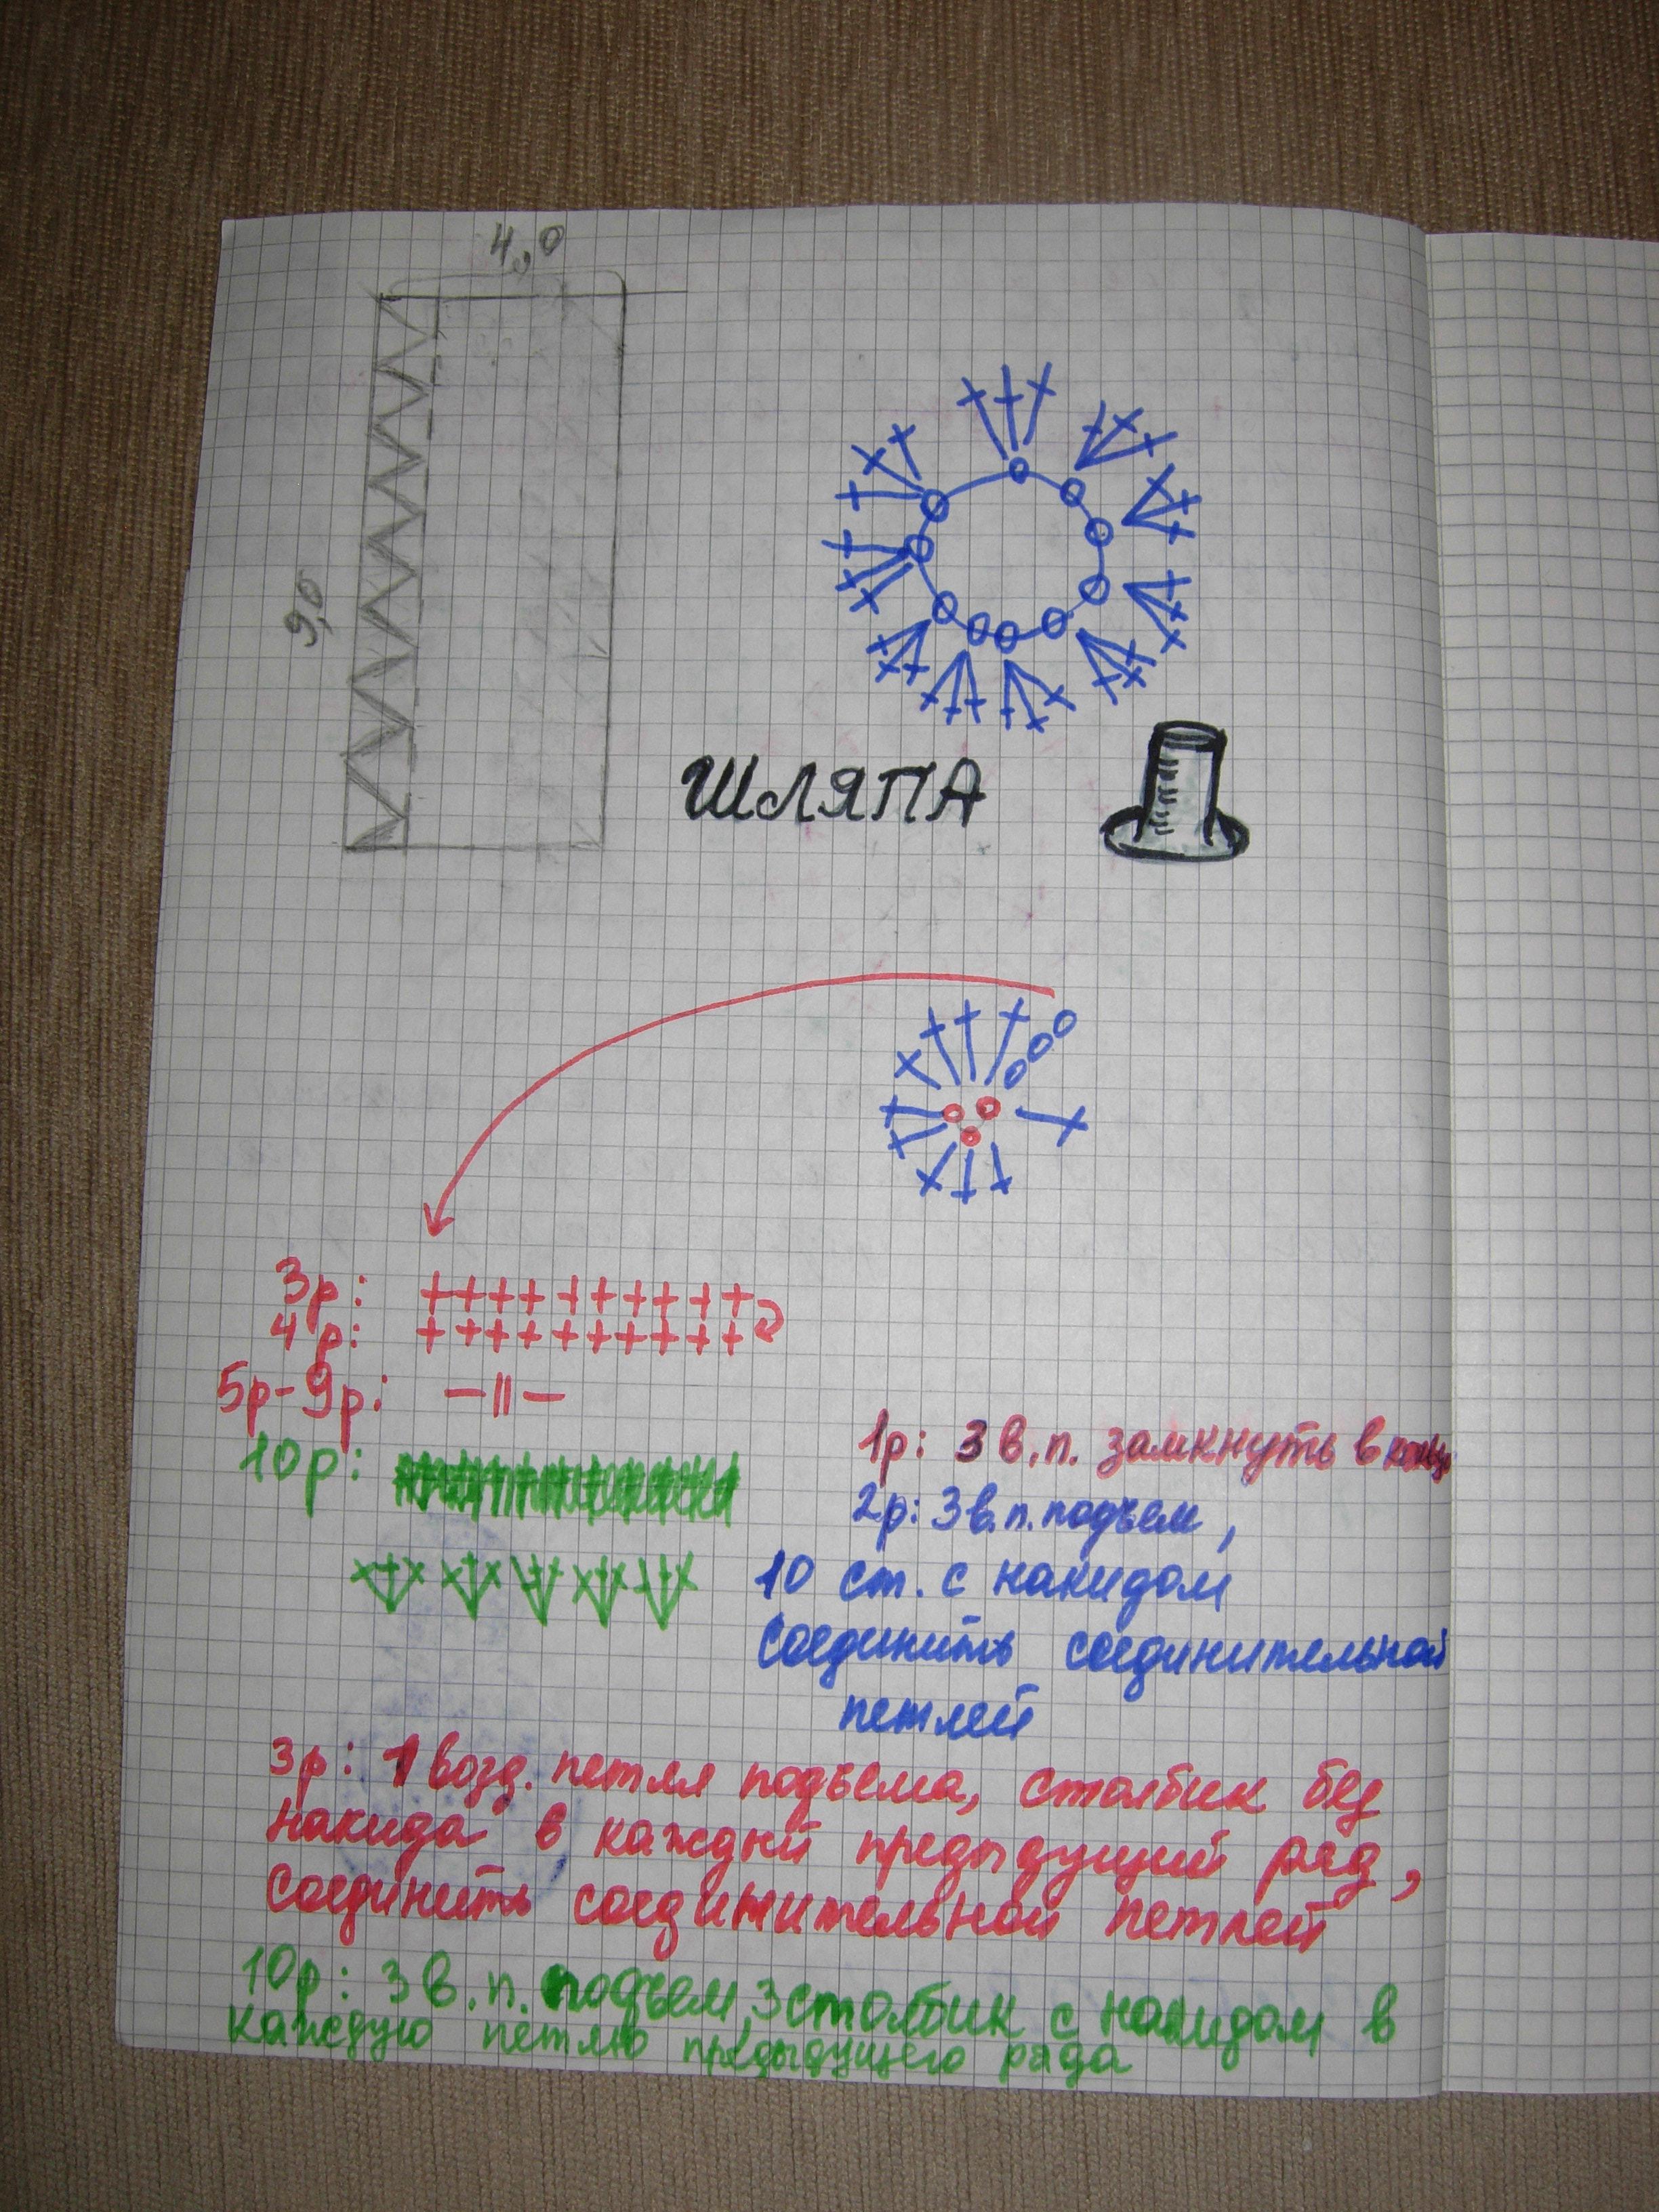 4,0
9,0
ШЛЯПА
3р:
4р:
5р-9р: —||—
10р:
1р: 3 в.п. замкнуть в
2р: 3 в.п. подъем,
10 ст. с накидом
соединить соединительной
петлей
3р: 1 возд. петля подъема, столбик без
накида в каждый предыдущий ряд,
соединить соединительной петлей
10р: 3 в.п. подъем, 3 столбик с накидом в
каждую петлю предыдущего ряда